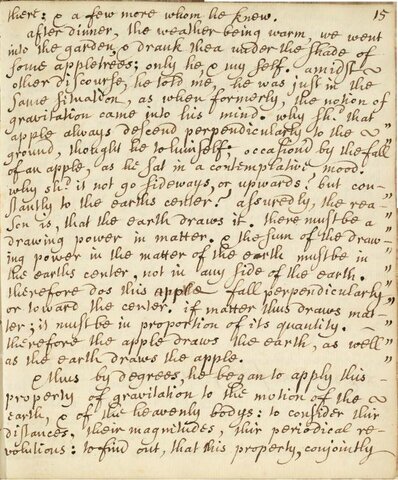 there: & a few more whom he knew. 15
after dinner, the weather being warm, we went
into the garden, & drank thea under the shade of
some appletrees; only he, & my self. amidst
other discourse, he told me, he was just in the
same situation, as when formerly, the notion of
gravitation came into his mind. why sh.d that
apple always descend perpendicularly to the
ground, thought he to himself: occasion'd by the fall
of an apple, as he sat in a contemplative mood.
why sh.d it not go sideways, or upwards? but con-
stantly to the earths center? assuredly, the rea-
son is, that the earth draws it. there must be a
drawing power in matter. & the sum of the draw-
ing power in the matter of the earth must be in
the earths center, not in any side of the earth.
therefore dos this apple fall perpendicularly
or toward the center. if matter thus draws mat-
ter; it must be in proportion of its quantity.
therefore the apple draws the earth, as well
as the earth draws the apple.
& thus by degrees, he began to apply this
property of gravitation to the motion of the
earth, & of the heavenly bodys: to consider thir
distances, their magnitudes, thir periodical re-
volutions: to find out, that this property, conjointly